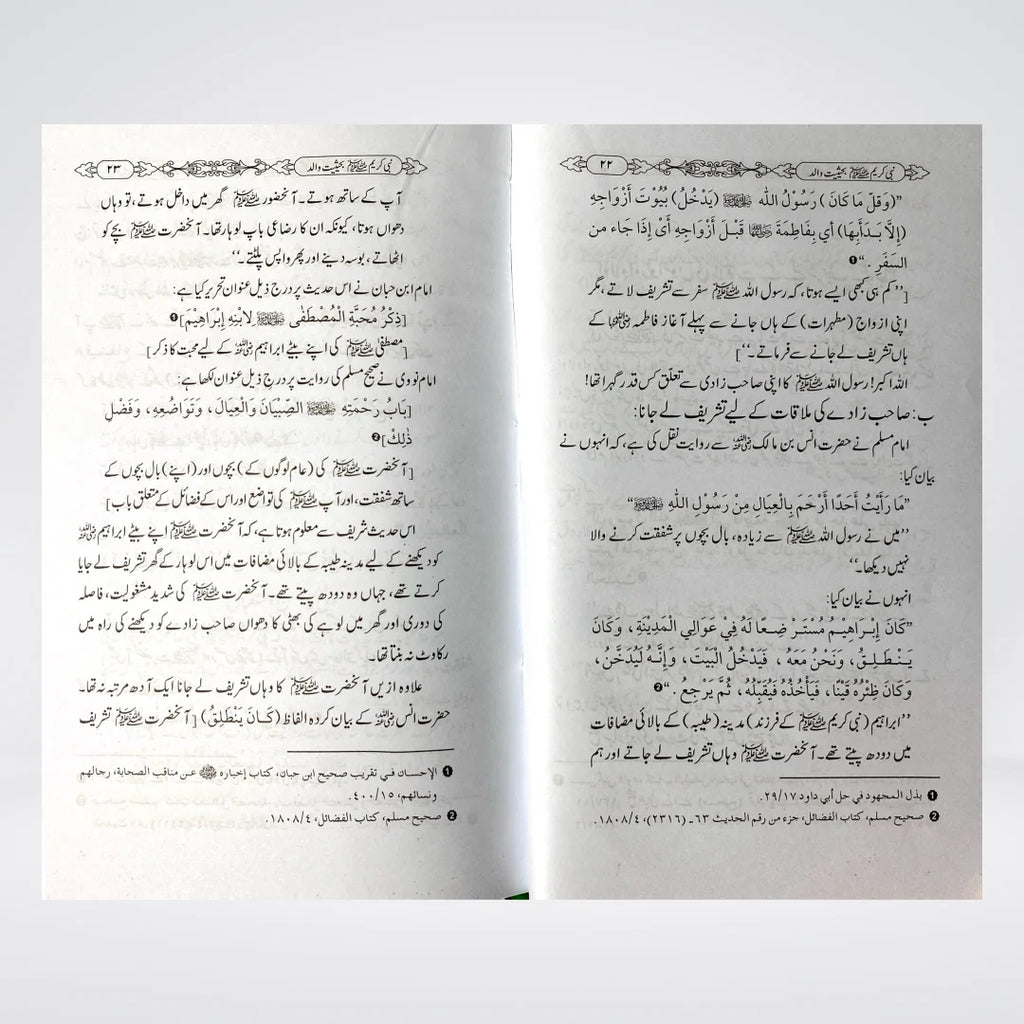 ۲۲
نبی کریم ﷺ بحیثیت والد
”(وَقَلَّ مَا كَانَ) رَسُوْلُ اللّٰهِ ﷺ (يَدْخُلُ) بُيُوْتَ أَزْوَاجِهِ
(إِلَّا بَدَأَبِهَا) أي بِفَاطِمَةَ ؓ قَبْلَ أَزْوَاجِهِ أَيْ إِذَا جَاء من
السَفَرِ .“❶
[’’کم ہی کبھی ایسے ہوتا، کہ رسول اللہ ﷺ سفر سے تشریف لاتے، مگر
اپنی ازواج (مطہرات) کے ہاں جانے سے پہلے آغاز فاطمہ ؓ کے
ہاں تشریف لے جانے سے فرماتے۔‘‘]
اللہ اکبر! رسول اللہ ﷺ کا اپنی صاحب زادی سے تعلق کس قدر گہرا تھا!
ب: صاحب زادے کی ملاقات کے لیے تشریف لے جانا:
امام مسلم نے حضرت انس بن مالک ؓ سے روایت نقل کی ہے، کہ انہوں نے
بیان کیا:
”مَا رَأَيْتُ أَحَدًا أَرْحَمَ بِالْعِيَالِ مِنْ رَسُوْلِ اللّٰهِ ﷺ“
’’میں نے رسول اللہ ﷺ سے زیادہ، بال بچوں پر شفقت کرنے والا
نہیں دیکھا۔‘‘
انہوں نے بیان کیا:
”كَانَ إِبْرَاهِيْمُ مُسْتَرْضِعًا لَهُ فِيْ عَوَالِي الْمَدِيْنَةِ، وَكَانَ
يَنْطَلِقُ، وَنَحْنُ مَعَهُ ، فَيَدْخُلُ الْبَيْتَ ، وَإِنَّهُ لَيُدَخَّنُ،
وَكَانَ ظِئْرُهُ قَيْنًا، فَيَأْخُذُهُ فَيُقَبِّلُهُ، ثُمَّ يَرْجِعُ .“❷
’’ابراہیم (نبی کریم ﷺ کے فرزند) مدینہ (طیبہ) کے بالائی مضافات
میں دودھ پیتے تھے۔ آنحضرت ﷺ وہاں تشریف لے جاتے اور ہم
❶ بذل المجهود في حل أبي داود ٢٩/١٧.
❷ صحيح مسلم، كتاب الفضائل، جزء من رقم الحديث ٦٣ـ (٢٣١٦)، ١٨٠٨/٤.
۲۳
نبی کریم ﷺ بحیثیت والد
آپ کے ساتھ ہوتے۔ آنحضور ﷺ گھر میں داخل ہوتے، تو وہاں
دھواں ہوتا، کیونکہ ان کا رضاعی باپ لوہار تھا۔ آنحضرت ﷺ بچے کو
اٹھاتے، بوسہ دیتے اور پھر واپس پلٹتے۔‘‘
امام ابن حبان نے اس حدیث پر درج ذیل عنوان تحریر کیا ہے:
[ذِكْرُ مُحَبَّةِ الْمُصْطَفٰى ﷺ لِابْنِهِ إِبْرَاهِيْمَ]❶
[مصطفیٰ ﷺ کی اپنے بیٹے ابراہیم ؓ کے لیے محبت کا ذکر]
امام نووی نے صحیح مسلم کی روایت پر درج ذیل عنوان لکھا ہے:
[بَابُ رَحْمَتِهِ ﷺ الصِّبْيَانَ وَالْعِيَالَ، وَتَوَاضُعِهِ، وَفَضْلِ
ذٰلِكَ]❷
[آنحضرت ﷺ کی (عام لوگوں کے) بچوں اور (اپنے) بال بچوں کے
ساتھ شفقت، اور آپ ﷺ کی تواضع اور اس کے فضائل کے متعلق باب]
اس حدیث شریف سے معلوم ہوتا ہے، کہ آنحضرت ﷺ اپنے بیٹے ابراہیم ؓ
کو دیکھنے کے لیے مدینہ طیبہ کے بالائی مضافات میں اس لوہار کے گھر تشریف لے جایا
کرتے تھے، جہاں وہ دودھ پیتے تھے۔ آنحضرت ﷺ کی شدید مشغولیت، فاصلہ
کی دوری اور گھر میں لوہے کی بھٹی کا دھواں صاحب زادے کو دیکھنے کی راہ میں
رکاوٹ نہ بنتا تھا۔
علاوہ ازیں آنحضرت ﷺ کا وہاں تشریف لے جانا ایک آدھ مرتبہ نہ تھا۔
حضرت انس ؓ کے بیان کردہ الفاظ (كَانَ يَنْطَلِقُ) [آنحضرت ﷺ تشریف
❶ الإحسان في تقريب صحيح ابن حبان، كتاب إخباره ﷺ عن مناقب الصحابة، رجالهم
ونسائهم، ٤٠٠/١٥.
❷ صحيح مسلم، كتاب الفضائل، ١٨٠٨/٤.